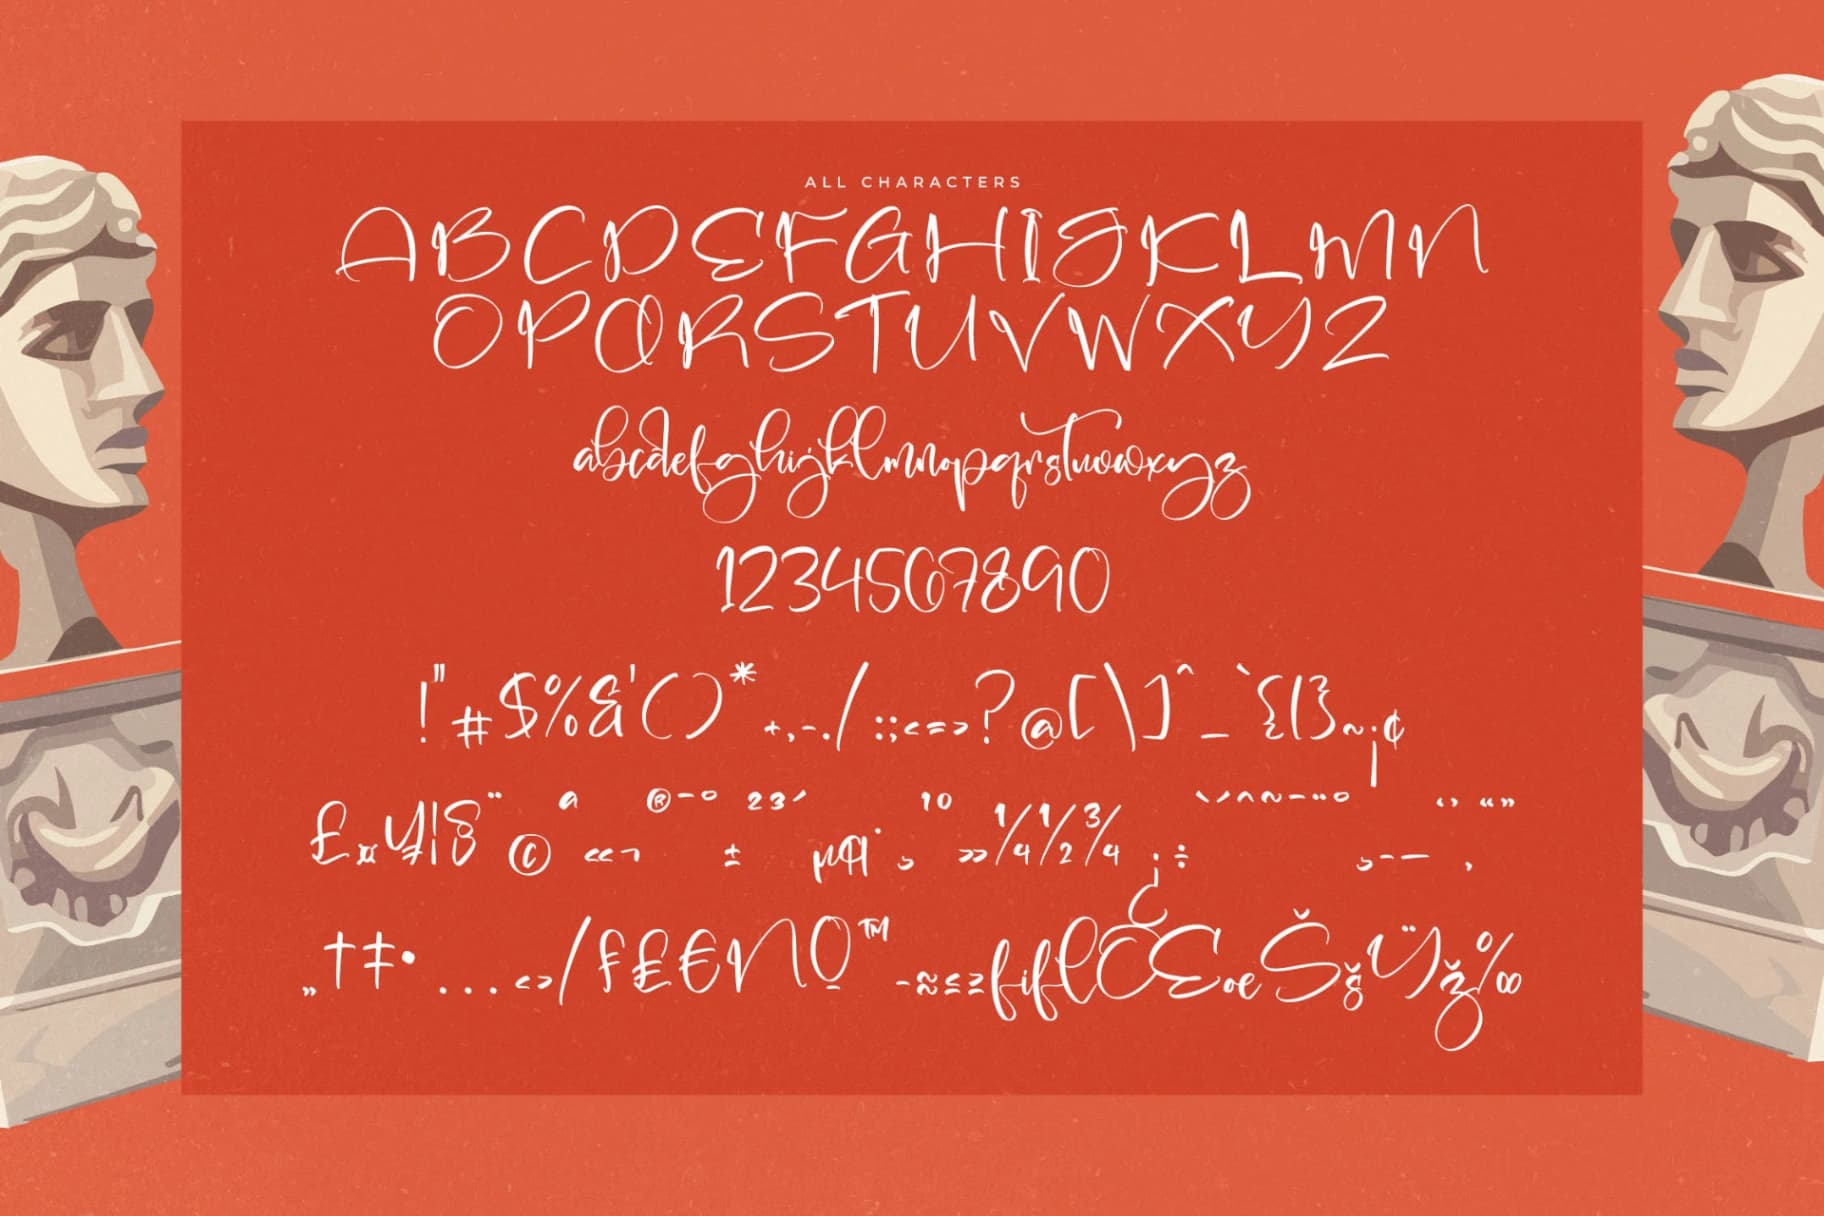 ALL CHARACTERS
ABCDEFGHIJKLMN
OPQRSTUVWXYZ
abcdefghijklmnopqrstuvwxyz
1234567890
!"#$%&'()*+,-./:;<=>?@[\]^_`{|}~¡¢
£¤¥¦§¨©ª«¬®¯°±²³´µ¶·¸¹º»¼½¾¿÷ˋˊˆ˜¯¨°¸–—‚‹›“”
„†‡•...‹›⁄₣₤€№™−≈≤≥fiflŒœŠšŸž‰